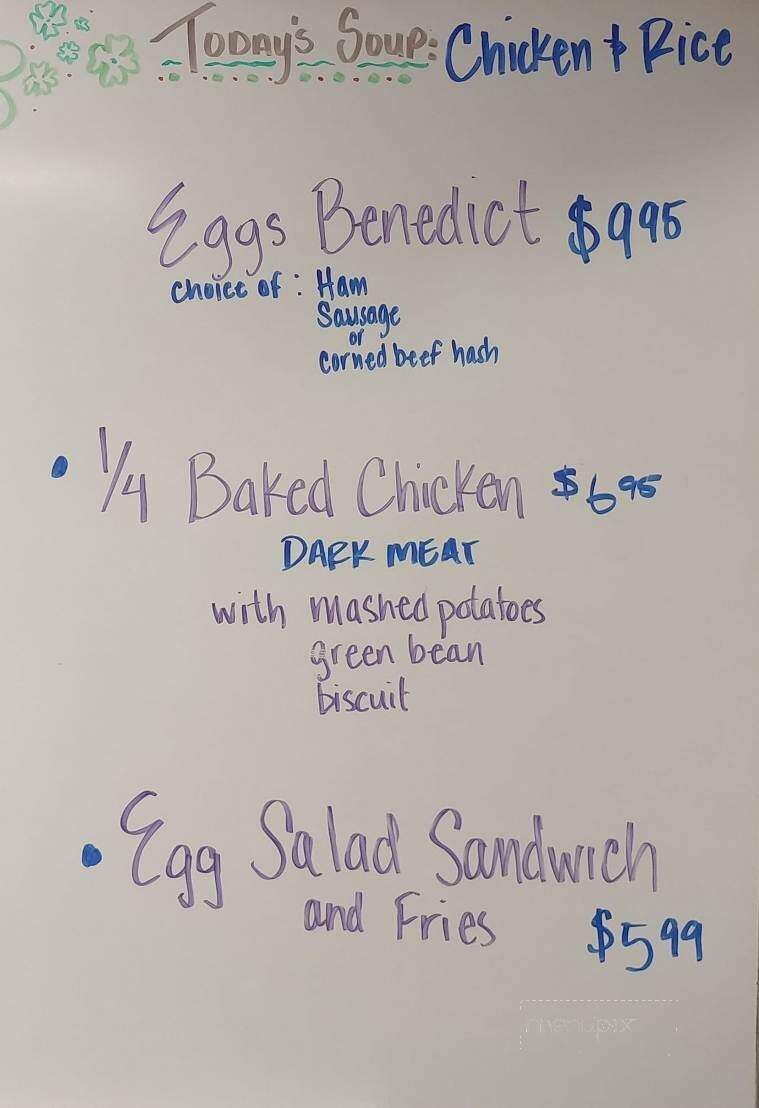 Today's Soup: Chicken + Rice
Eggs Benedict $9 95
choice of : Ham
Sausage
or
corned beef hash
• 1/4 Baked Chicken $6 95
DARK MEAT
with mashed potatoes
green bean
biscuit
• Egg Salad Sandwich
and Fries $5 99
menupix